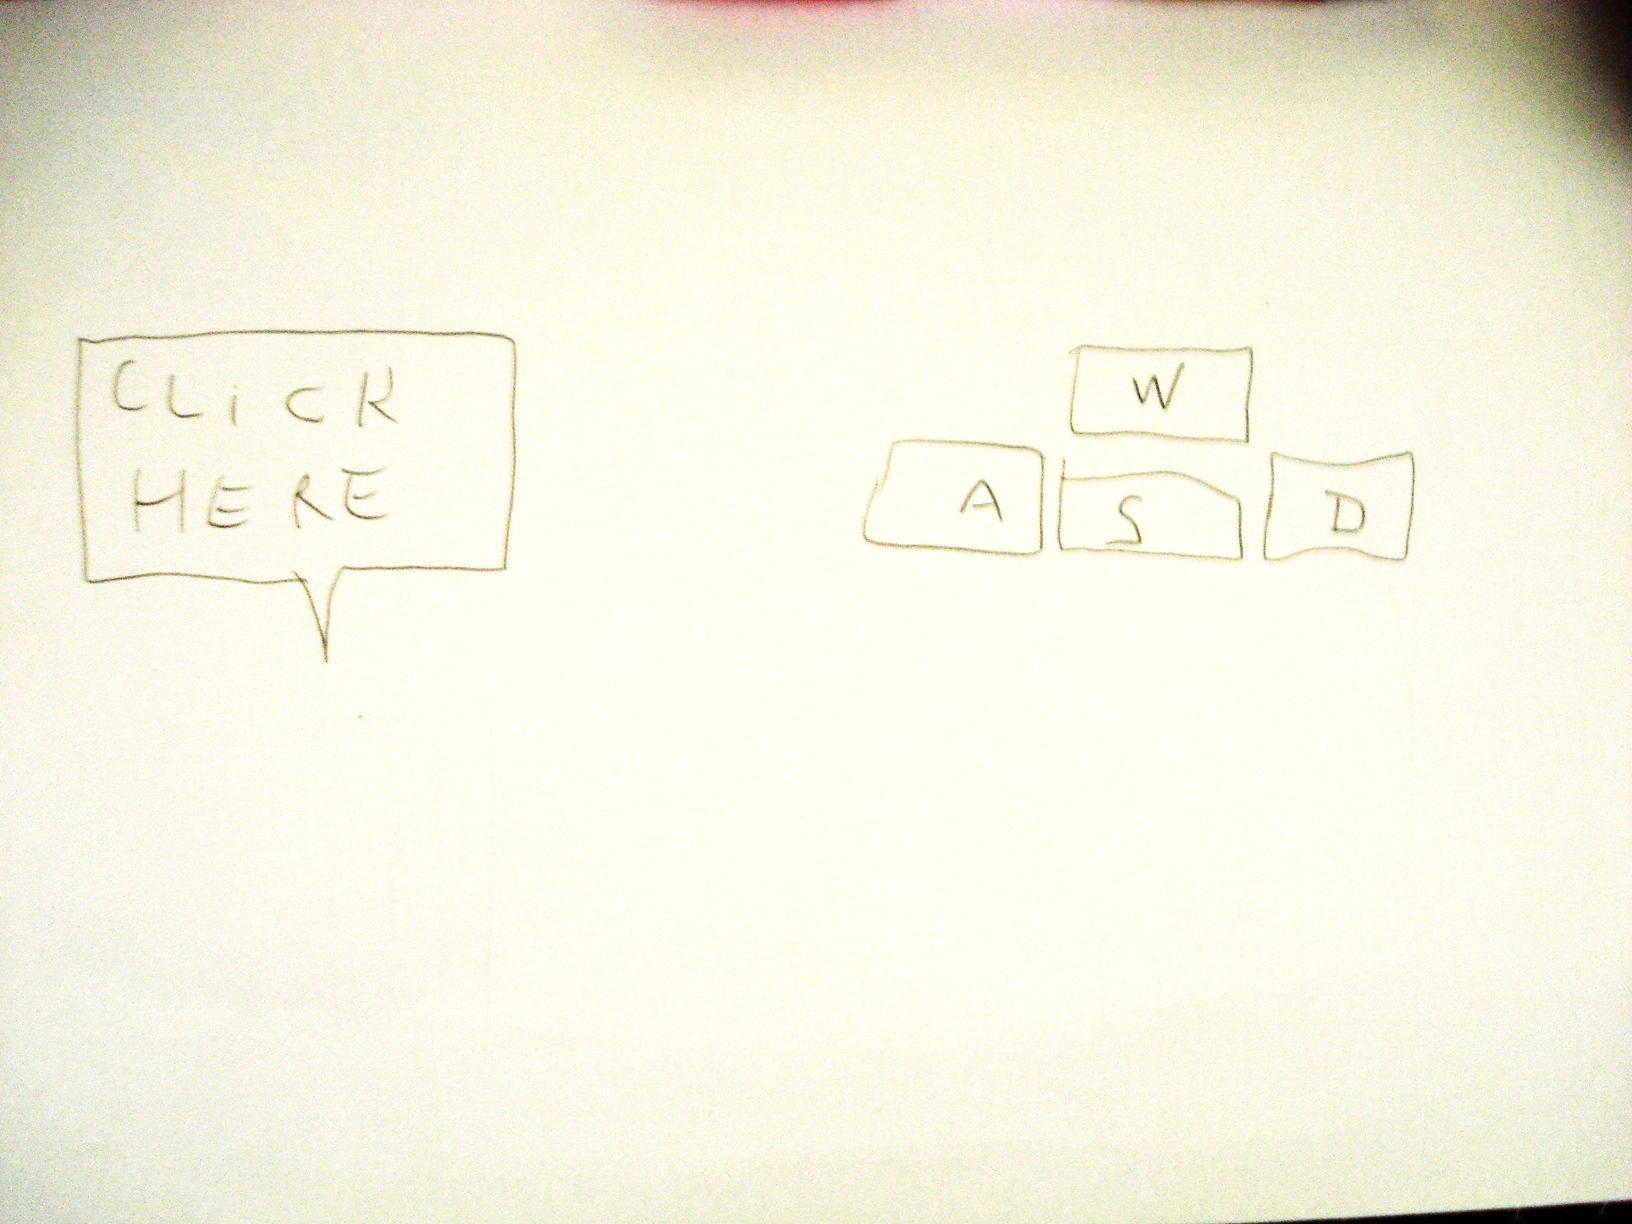 CLiCK
HERE
W
A S D